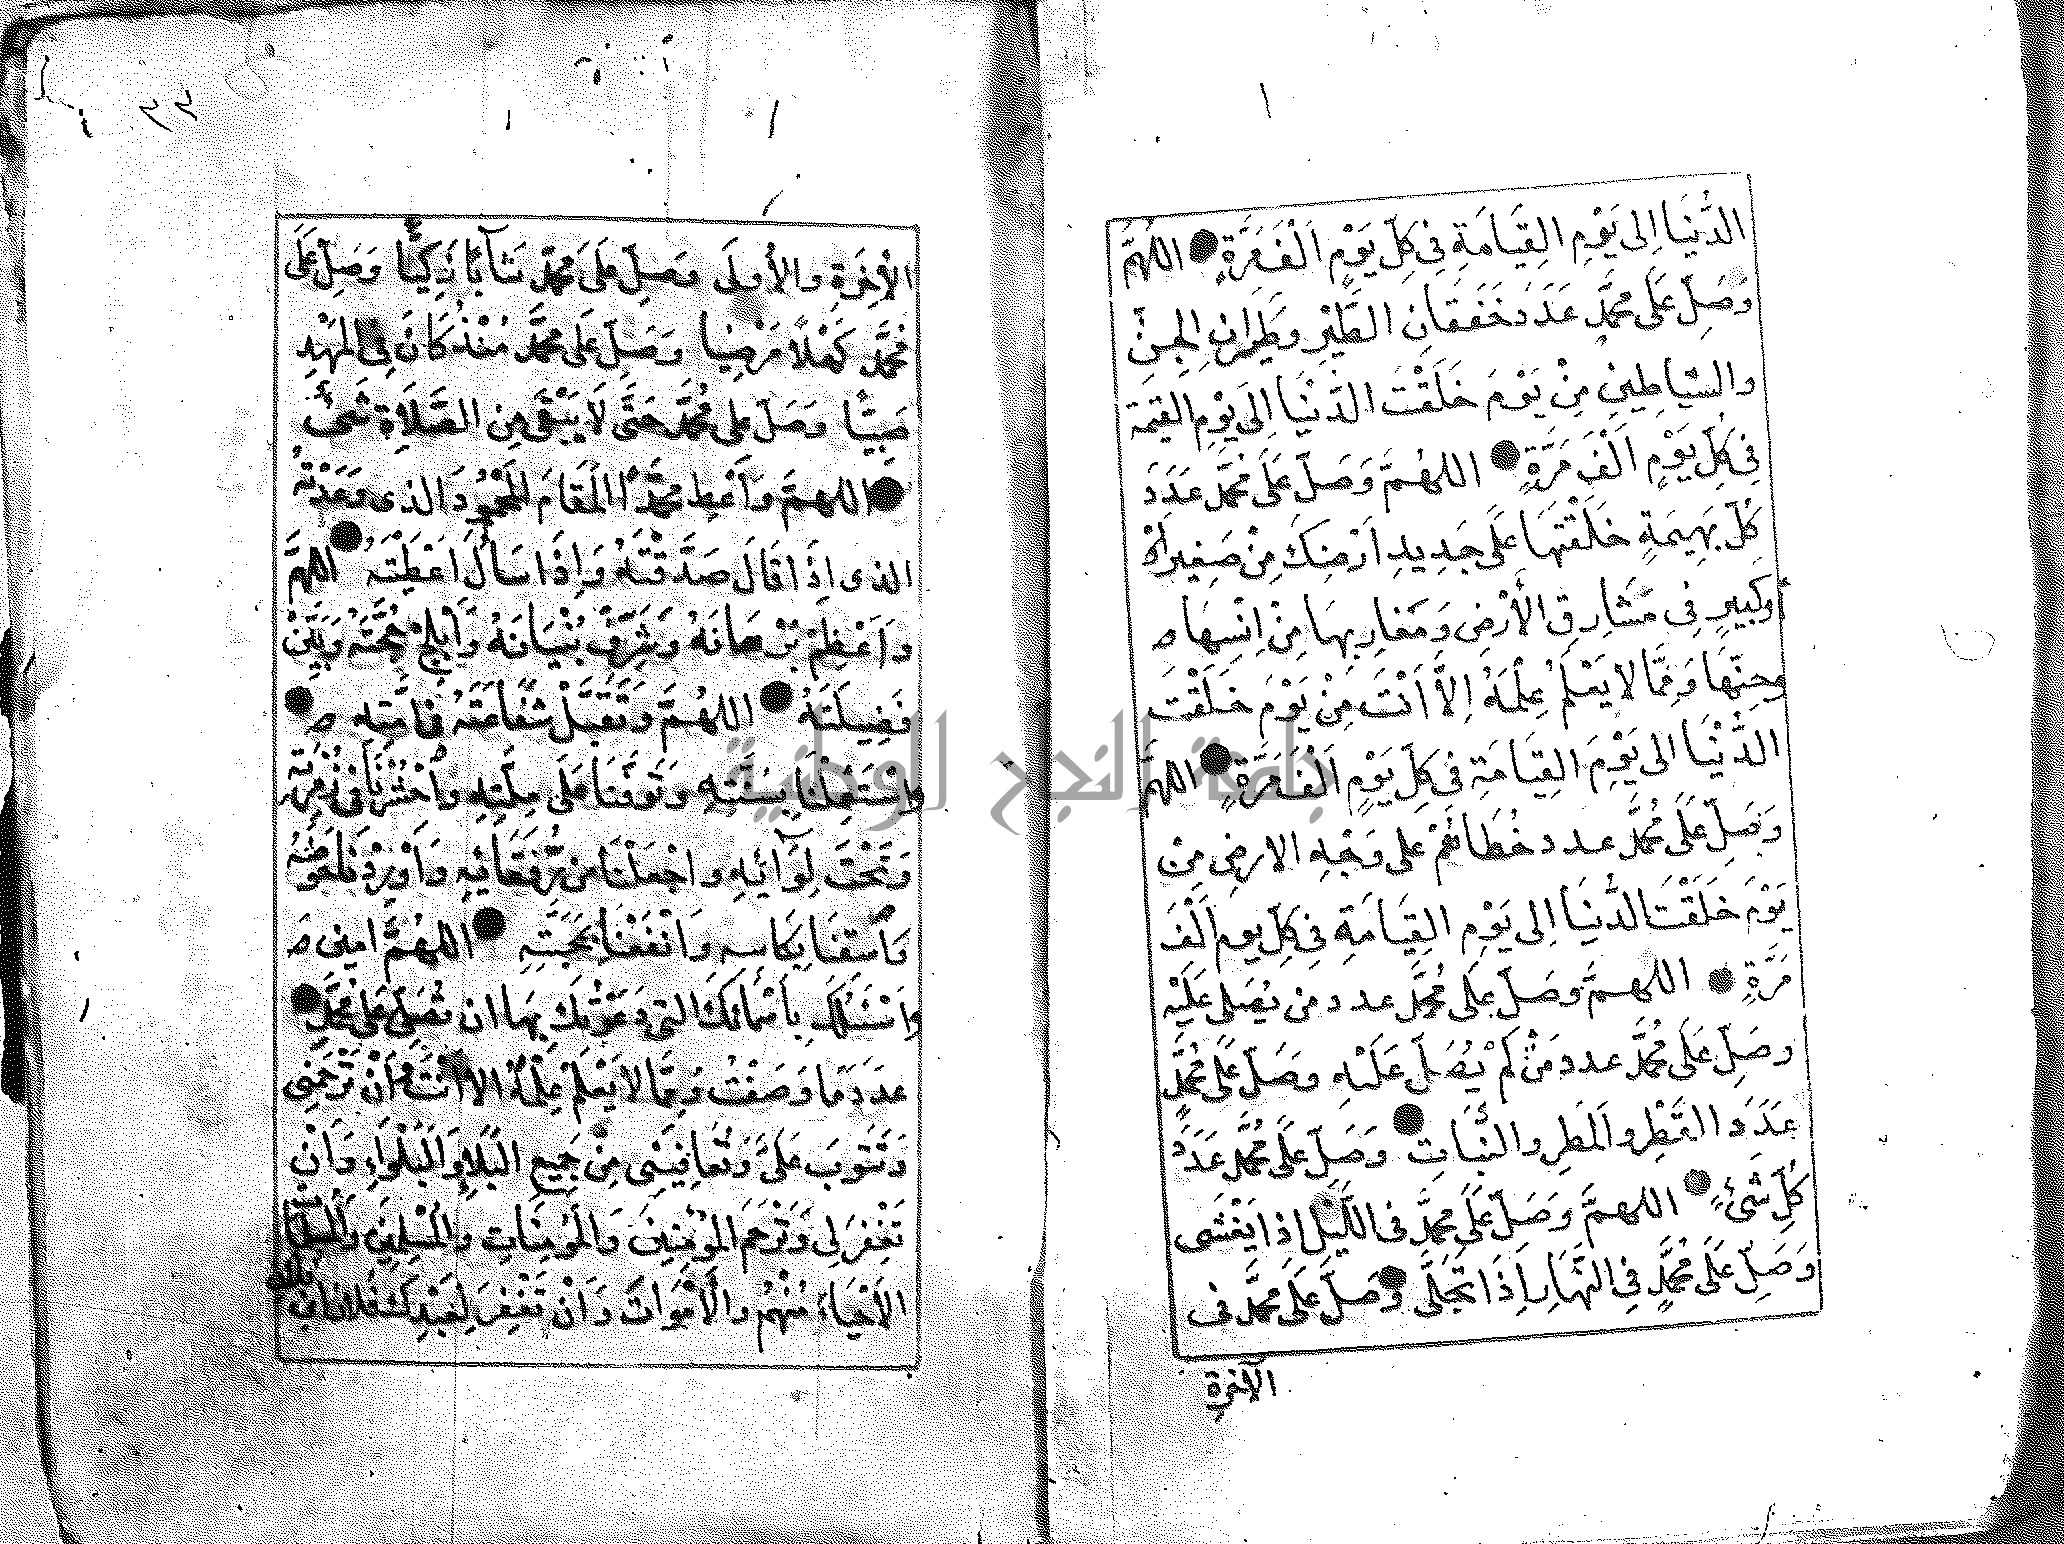 الدُّنْيَا اِلى يَوْمِ القِيَامَةِ فِى كِلّ يَوْمٍ اَلْفَ مَرَّةٍ اللهُمَّ
وَصَلِّ عَلَى مُحَمَّدٍ عَدَدَ خَفَقَانِ الطَّيْرِ وطَيرانِ الجِنّ
والشّياطِينِ مِنْ يَوْمَ خَلَقْتَ الدُّنْيَا اِلى يَوْمِ القيمة
فى كِلّ يَوْمٍ اَلْفَ مَرَّةٍ اللهُمَّ وَصَلّ عَلَى مُحَمَّد عَدَدَ
كُلّ بَهِيمَةٍ خَلَقْتَهَا عَلَى جَدِيدِ اَرْضِكَ مِنْ صَغِيرٍ اَوْ
اَوكَبِيرٍ فِى مَشَارِقِ الأَرْضِ وَمَغَارِبِهَا مِنْ اِنْسِهَا ص
وَجِنّهَا وَمِمَّا لا يَعْلَمُ عِلْمَهُ اِلاَّ اَنْتَ مِنْ يَوْمَ خَلَقْتَ
الدُّنْيَا الى يَوْمِ القِيَامَةِ فى كِلّ يَوْمٍ اَلْفَ مَرَّةٍ اللهُمَّ
وَصَلِّ عَلَى مُحَمَّد عدد خُطَاهُمْ على وَجْهِ الارضِ مِنْ
يَوْمَ خَلَقْتَ الدُّنْيَا اِلى يَوْمِ القِيَامَةِ فى كِلّ يوم اَلْفَ
مَرَّةٍ اللهمَّ وصَلّ عَلَى مُحَمَّد عدد من يُصَلى عَلَيْهِ
وصَلِّ عَلَى مُحَمَّد عدد مَنْ لَمْ يُصَلّ عَلَيْهِ وصَلّ عَلَى مُحَمَّد
عَدَدَ القَطْرِ والمَطَرِ والنَّبَاتِ وَصَلّ عَلَى مُحَمَّد عَدَدَ
كُلِّ شَىْءٍ اللهمَّ وَصَلّ عَلَى محمَّد فى اللَّيْلِ اِذا يَغْشَى
وَصَلِّ عَلَى مُحَمَّدٍ فِى النَّهَارِ اِذَا تَجَلَّى وَصَلّ عَلَى مُحَمَّد فى
الآخرة
٣٣
الاَخِرَةِ والأُولَى وَصَلِّ عَلَى مُحَمَّدٍ شَآبًّا زَكِيًّا وَصَلِّ عَلَى
مُحَمَّد كَهْلاً مَرْضِيًا وَصَلِّ عَلَى مُحَمَّد مُنْذُ كَانَ فِى المَهْدِ
صَبِيًّا وَصَلّ على مُحَمَّد حَتَّى لاَ يَبْقَى مِنَ الصَّلاَةِ شَىْءٌ
اللهمَّ وَاَعْطِ مُحَمَّدًا المَقَامَ المَحْمُودَ الذى وَعَدْتَهُ
الذى اِذَا قَالَ صَدَّقْتَهُ وَاِذَا سَأَلَ اَعْطَيْتَهُ اللهُمَّ
وَاَعْظِمْ بُرْهَانَهُ وَشَرِّفْ بُنْيَانَهُ وَاَبْلِجْ حُجَّتَهُ وَبَيِّنْ
فَضِيلَتَهُ اللهُمَّ وَتَقَبَّلْ شَفَاعَتَهُ فى امّتِهِ ص
وَاسْتَعْمِلْنَا بِسُنَّتِهِ وَتَوَفَّنَا عَلَى مِلَّتِهِ وَاحْشُرْنَا فى زُمْرَتِهِ
وَتَحْتَ لِوَآئِهِ واجْعَلْنَا مِنْ رُفَقَائِهِ وَاَوْرِدْنَا حَوْضَهُ
وَاَسْقِنَا بِكَاسِهِ وَانْفَعْنَا بِمَحَبَّتِهِ اللهُمَّ امين ص
وَاَسْئَلُكَ بِاَسْمَائِكَ التى دَعَوْتُكَ بِهَا ان تُصَلّى عَلَى مُحَمَّدٍ
عَدَدَ مَا وَصَفْتُ وَمِمَّا لا يَعْلَمُ عِلْمَهُ اِلاَّ اَنْتَ وَاَنْ تَرْحَمَنِى
وَتَتُوبَ عَلَىَّ وَتُعَافِيَنِى مِنْ جَمِيعِ البَلاءِ وَالبَلْوَاءِ وَاَنْ
تَغْفِرَ لِى وَتَرْحَمَ المُؤْمِنِينَ وَالمُؤْمِنَاتِ وَالمُسْلِمِينَ وَالمُسْلِمَاتِ
الاَحْيَاءَ مِنْهُمْ والأَمْوَاتَ وَاَنْ تَغْفِرَ لِعَبْدِكَ فلان ابن
جامعة النجاح الوطنية